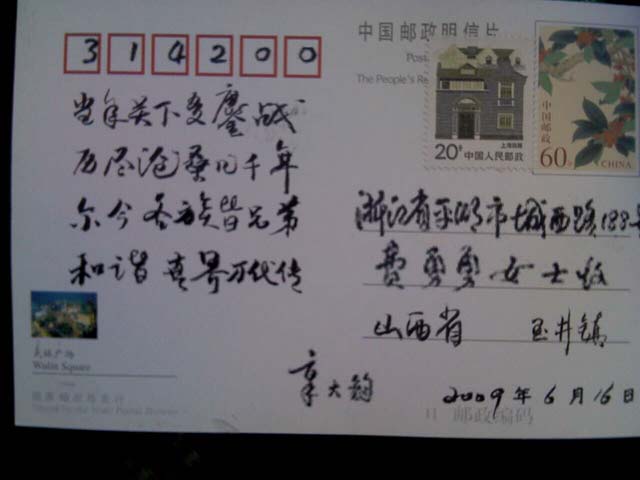 314200
中国邮政明信片
Post
The People's Re
当年关下多鏖战
历尽沧桑几千年
尔今各族皆兄弟
和谐 真昇万代传
20分 中国人民邮政
上海民居
中国邮政
60分
CHINA
浙江省平湖市城西路188号
费勇勇女士收
山西省 玉井镇
章大钧
2009年6月16日
武林广场
Wulin Square
邮政编码